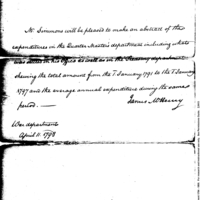 Mr Simmons will be pleased to make an abstract of the
expenditures in the Quarter Masters department including
was settled in his office as well as in the Treasury department
shewing the total amounts from the 1 January 1791 to the 1 January
1797 and the average annual expenditures during the same
period.
James McHenry
War department
April 11. 1798